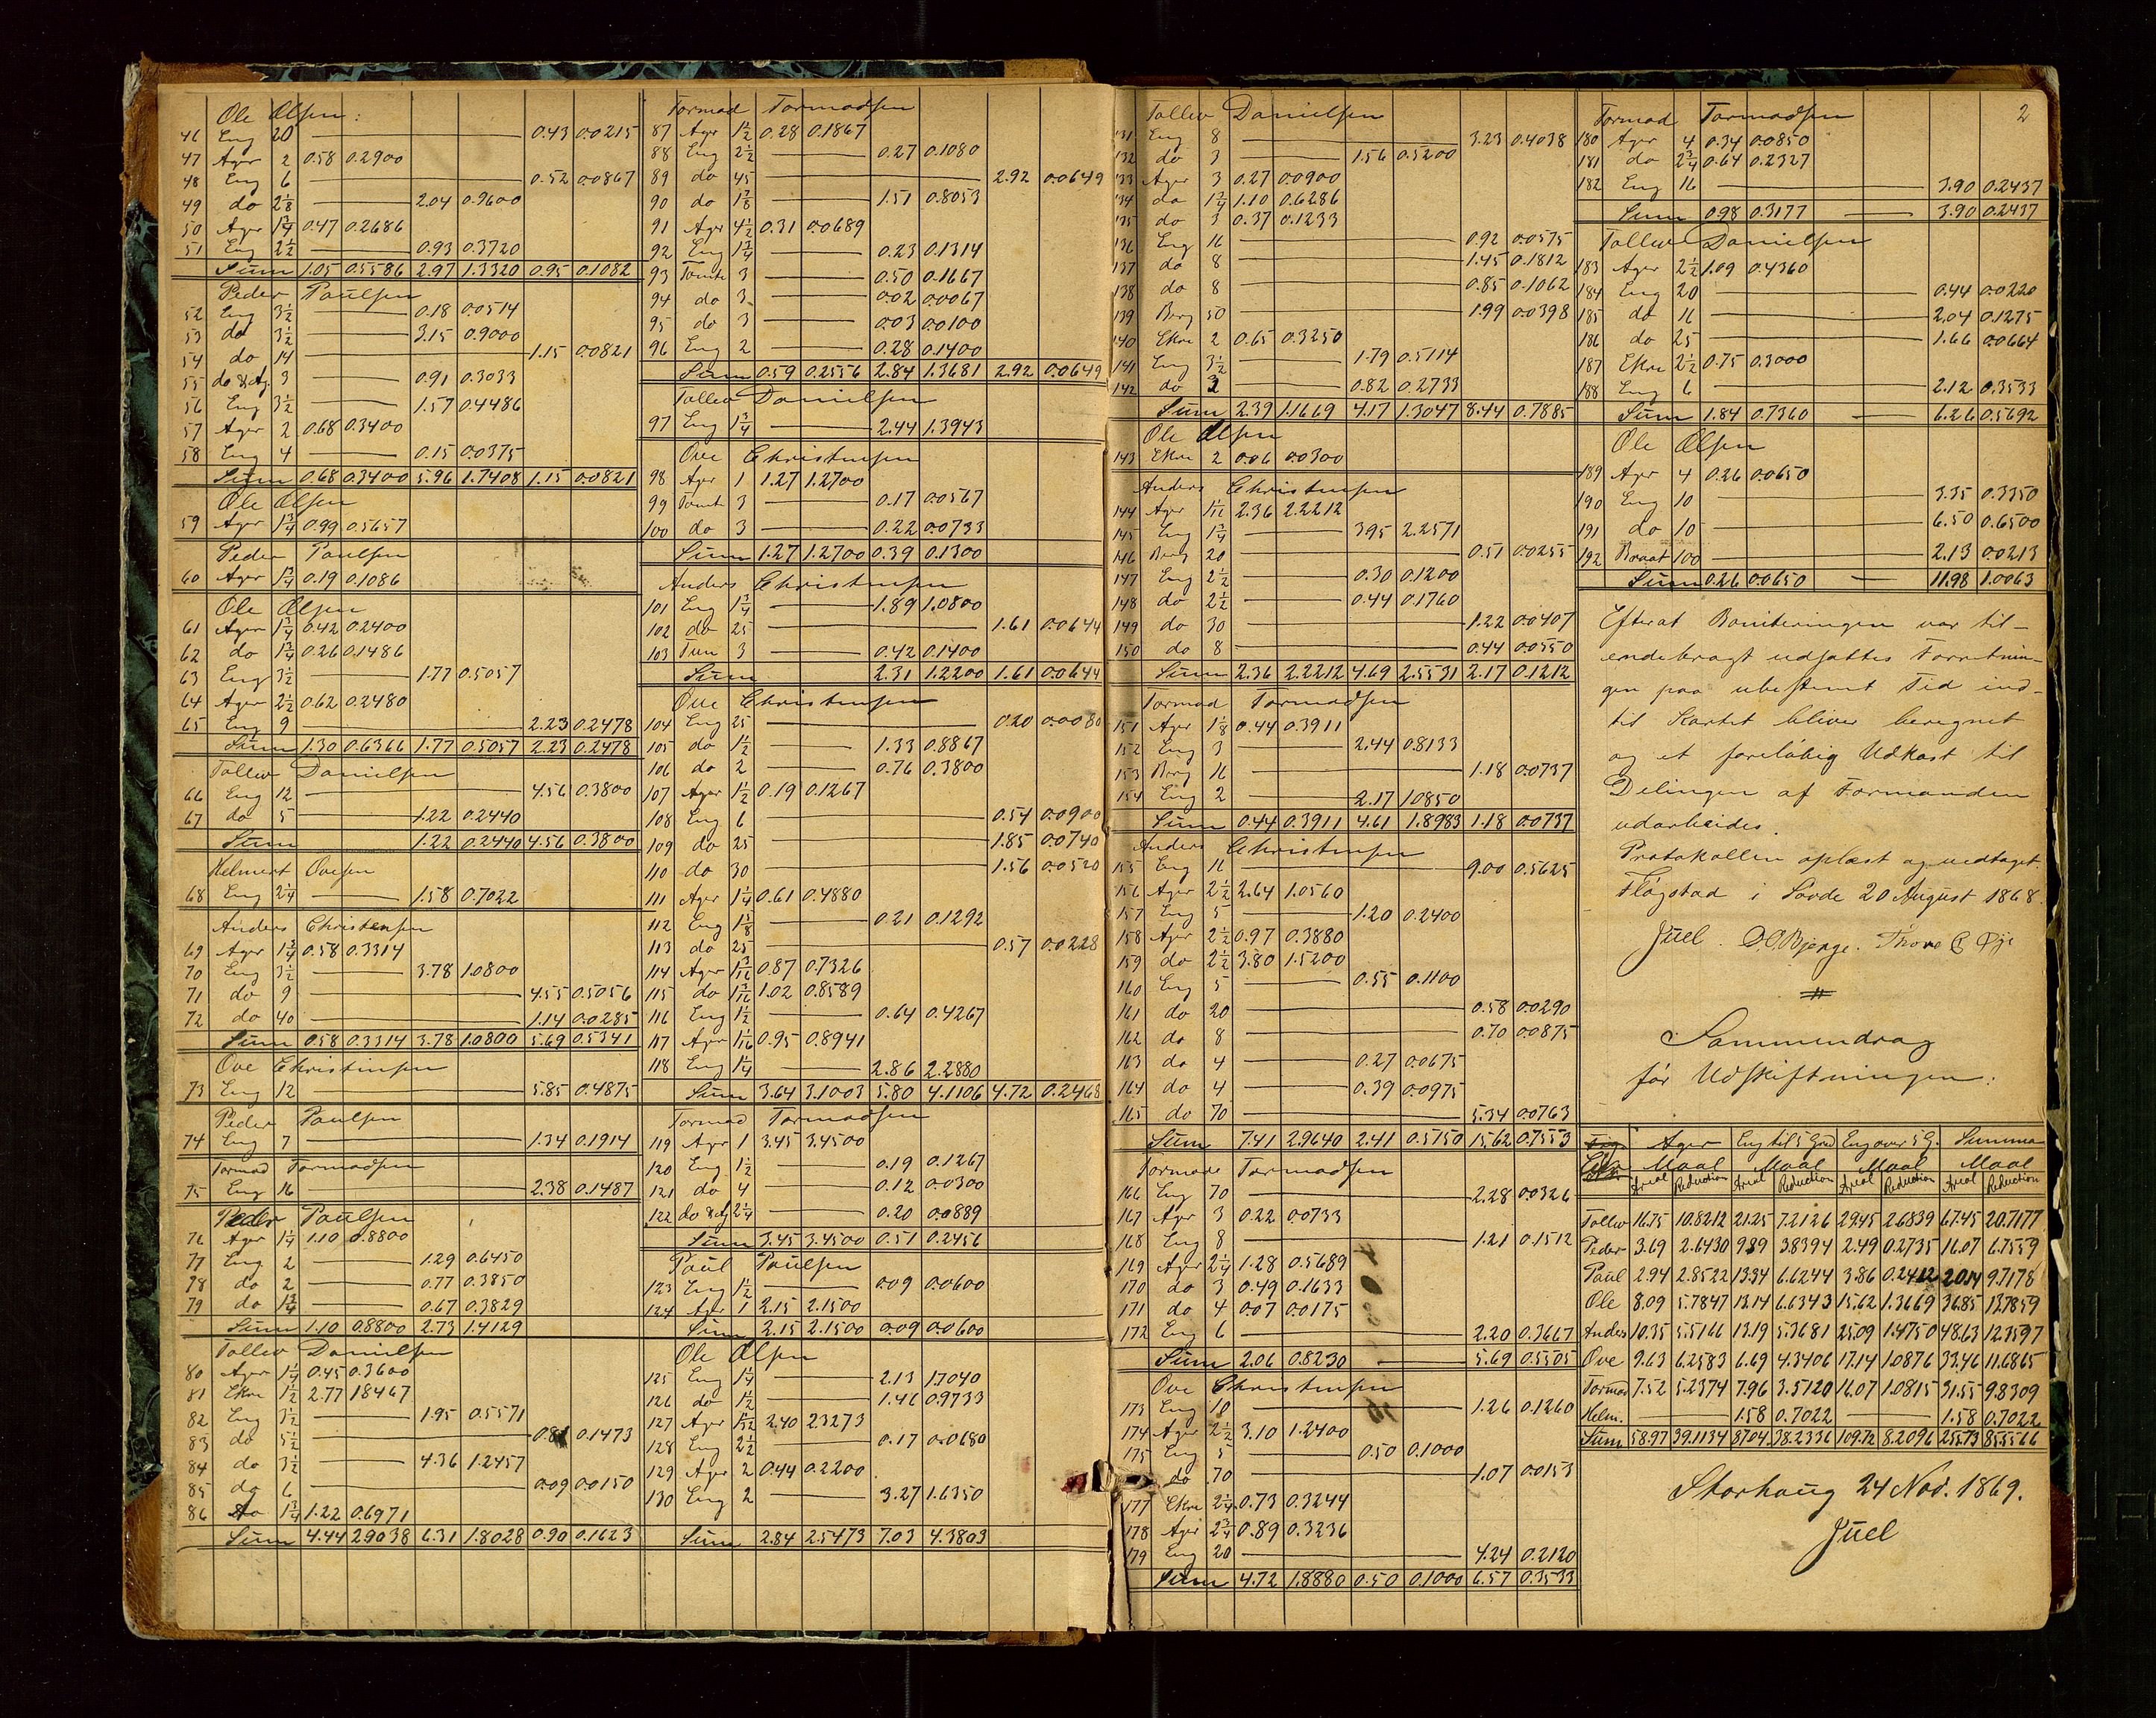 Ole Olsen:
46 Eng 20 — 0.43 0.0215
47 Ager 2 0.58 0.2900
48 Eng 6 — 0.52 0.0867
49 do 2 1/8 — 2.04 0.9600
50 Ager 1 3/4 0.47 0.2686
51 Eng 2 1/2 — 0.93 0.3720
Sum 1.05 0.5586 2.97 1.3320 0.95 0.1082
Peder Paulsen
52 Eng 3 1/2 — 0.18 0.0514
53 do 3 1/2 — 3.15 0.9000
54 do 14 — 1.15 0.0821
55 do & Ag. 3 — 0.91 0.3033
56 Eng 3 1/2 — 1.57 0.4486
57 Ager 2 0.68 0.3400
58 Eng 4 — 0.15 0.0375
Sum 0.68 0.3400 5.96 1.7408 1.15 0.0821
Ole Olsen
59 Ager 1 3/4 0.99 0.5657
Peder Paulsen
60 Ager 1 3/4 0.19 0.1086
Ole Olsen
61 Ager 1 3/4 0.42 0.2400
62 do 1 3/4 0.26 0.1486
63 Eng 3 1/2 — 1.77 0.5057
64 Ager 2 1/2 0.62 0.2480
65 Eng 9 — 2.23 0.2478
Sum 1.30 0.6366 1.77 0.5057 2.23 0.2478
Tollev Danielsen
66 Eng 12 — 4.56 0.3800
67 do 5 — 1.22 0.2440
Sum 1.22 0.2440 4.56 0.3800
Helmert Ovesen
68 Eng 2 1/4 — 1.58 0.7022
Anders Christensen
69 Ager 1 3/4 0.58 0.3314
70 Eng 3 1/2 — 3.78 1.0800
71 do 9 — 4.55 0.5056
72 do 40 — 1.14 0.0285
Sum 0.58 0.3314 3.78 1.0800 5.69 0.5341
Ove Christensen
73 Eng 12 — 5.85 0.4875
Peder Paulsen
74 Eng 7 — 1.34 0.1914
Tormod Tormodsen
75 Eng 16 — 2.38 0.1487
Peder Paulsen
76 Ager 1 1/4 1.10 0.8800
77 Eng 2 — 1.29 0.6450
78 do 2 — 0.77 0.3850
79 do 1 3/4 — 0.67 0.3829
Sum 1.10 0.8800 2.73 1.4129
Tollev Danielsen
80 Ager 1 1/4 0.45 0.3600
81 Ekre 1 1/2 2.77 1.8467
82 Eng 3 1/2 — 1.95 0.5571
83 do 5 1/2 — 0.81 0.1473
84 do 3 1/2 — 4.36 1.2457
85 do 6 — 0.09 0.0150
86 do 1 3/4 1.22 0.6971
Sum 4.44 2.9038 6.31 1.8028 0.90 0.1623
Tormod Tormodsen
87 Ager 1 1/2 0.28 0.1867
88 Eng 2 1/2 — 0.27 0.1080
89 do 45 — 2.92 0.0649
90 do 1 7/8 — 1.51 0.8053
91 Ager 4 1/2 0.31 0.0689
92 Eng 1 3/4 — 0.23 0.1314
93 Tomt 3 — 0.50 0.1667
94 do 3 — 0.02 0.0067
95 do 3 — 0.03 0.0100
96 Eng 2 — 0.28 0.1400
Sum 0.59 0.2556 2.84 1.3681 2.92 0.0649
Tollev Danielsen
97 Eng 1 3/4 — 2.44 1.3943
Ove Christensen
98 Ager 1 1.27 1.2700
99 Tomt 3 — 0.17 0.0567
100 do 3 — 0.22 0.0733
Sum 1.27 1.2700 0.39 0.1300
Anders Christensen
101 Eng 1 3/4 — 1.89 1.0800
102 do 25 — 1.61 0.0644
103 Tun 3 — 0.42 0.1400
Sum 2.31 1.2200 1.61 0.0644
Ove Christensen
104 Eng 25 — 0.20 0.0080
105 do 1 1/2 — 1.33 0.8867
106 do 2 — 0.76 0.3800
107 Ager 1 1/2 0.19 0.1267
108 Eng 6 — 0.54 0.0900
109 do 25 — 1.85 0.0740
110 do 30 — 1.56 0.0520
111 Ager 1 1/4 0.61 0.4880
112 Eng 1 5/8 — 0.21 0.1292
113 do 25 — 0.57 0.0228
114 Ager 1 3/16 0.87 0.7326
115 do 1 3/16 1.02 0.8589
116 Eng 1 1/2 — 0.64 0.4267
117 Ager 1 1/16 0.95 0.8941
118 Eng 1 1/4 — 2.86 2.2880
Sum 3.64 3.1003 5.80 4.1106 4.72 0.2468
Tormod Tormodsen
119 Ager 1 3.45 3.4500
120 Eng 1 1/2 — 0.19 0.1267
121 do 4 — 0.12 0.0300
122 do & Ag 2 1/4 — 0.20 0.0889
Sum 3.45 3.4500 0.51 0.2456
Paul Paulsen
123 Eng 1 1/2 — 0.09 0.0600
124 Ager 1 2.15 2.1500
Sum 2.15 2.1500 0.09 0.0600
Ole Olsen
125 Eng 1 1/4 — 2.13 1.7040
126 do 1 1/2 — 1.46 0.9733
127 Ager 1 1/32 2.40 2.3273
128 Eng 2 1/2 — 0.17 0.0680
129 Ager 2 0.44 0.2200
130 Eng 2 — 3.27 1.6350
Sum 2.84 2.5473 7.03 4.3803
Tollev Danielsen
131 Eng 8 — 3.23 0.4038
132 do 3 — 1.56 0.5200
133 Ager 3 0.27 0.0900
134 do 1 3/4 1.10 0.6286
135 do 3 0.37 0.1233
136 Eng 16 — 0.92 0.0575
137 do 8 — 1.45 0.1812
138 do 8 — 0.85 0.1062
139 Berg 50 — 1.99 0.0398
140 Ekre 2 0.65 0.3250
141 Eng 3 1/2 — 1.79 0.5114
142 do 3 — 0.82 0.2733
Sum 2.39 1.1669 4.17 1.3047 8.44 0.7885
Ole Olsen
143 Ekre 2 0.06 0.0300
Anders Christensen
144 Ager 1 1/16 2.36 2.2212
145 Eng 1 3/4 — 3.95 2.2571
146 Berg 20 — 0.51 0.0255
147 Eng 2 1/2 — 0.30 0.1200
148 do 2 1/2 — 0.44 0.1760
149 do 30 — 1.22 0.0407
150 do 8 — 0.44 0.0550
Sum 2.36 2.2212 4.69 2.5531 2.17 0.1212
Tormod Tormodsen
151 Ager 1 1/8 0.44 0.3911
152 Eng 3 — 2.44 0.8133
153 Berg 16 — 1.18 0.0737
154 Eng 2 — 2.17 1.0850
Sum 0.44 0.3911 4.61 1.8983 1.18 0.0737
Anders Christensen
155 Eng 16 — 9.00 0.5625
156 Ager 2 1/2 2.64 1.0560
157 Eng 5 — 1.20 0.2400
158 Ager 2 1/2 0.97 0.3880
159 do 2 1/2 3.80 1.5200
160 Eng 5 — 0.55 0.1100
161 do 20 — 0.58 0.0290
162 do 8 — 0.70 0.0875
163 do 4 — 0.27 0.0675
164 do 4 — 0.39 0.0975
165 do 70 — 5.34 0.0763
Sum 7.41 2.9640 2.41 0.5150 15.62 0.7553
Tormod Tormodsen
166 Eng 70 — 2.28 0.0326
167 Ager 3 0.22 0.0733
168 Eng 8 — 1.21 0.1512
169 Ager 2 1/4 1.28 0.5689
170 do 3 0.49 0.1633
171 do 4 0.07 0.0175
172 Eng 6 — 2.20 0.3667
Sum 2.06 0.8230 — 5.69 0.5505
Ove Christensen
173 Eng 10 — 1.26 0.1260
174 Ager 2 1/2 3.10 1.2400
175 Eng 5 — 0.50 0.1000
do 70 — 1.07 0.0153
177 Ekre 2 1/4 0.73 0.3244
178 Ager 2 3/4 0.89 0.3236
179 Eng 20 — 4.24 0.2120
Sum 4.72 1.8880 0.50 0.1000 6.57 0.3533
2
Tormod Tormodsen
180 Ager 4 0.34 0.0850
181 do 2 3/4 0.64 0.2327
182 Eng 16 — 3.90 0.2437
Sum 0.98 0.3177 — 3.90 0.2437
Tollev Danielsen
183 Ager 2 1/2 1.09 0.4360
184 Eng 20 — 0.44 0.0220
185 do 16 — 2.04 0.1275
186 do 25 — 1.66 0.0664
187 Ekre 2 1/2 0.75 0.3000
188 Eng 6 — 2.12 0.3533
Sum 1.84 0.7360 — 6.26 0.5692
Ole Olsen
189 Ager 4 0.26 0.0650
190 Eng 10 — 3.35 0.3350
191 do 10 — 6.50 0.6500
192 Braat 100 — 2.13 0.0213
Sum 0.26 0.0650 — 11.98 1.0063
Efterat Boniteringen var til-
endebragt udsattes Forretnin-
gen paa ubestemt Tid ind-
til Kartet bliver beregnet
og et foreløbig Udkast til
Delingen af Formanden
udarbeides.
Protokollen oplæst og vedtaget.
Fløgstad i Sovde 20 August 1868.
Juel. D.O. Bjerge.
Sammendrag
før Udskiftningen:
Ager Eng til 5 Grad Eng over 5 G. Summa
Maal Maal Maal Maal
Areal Reduction Areal Reduction Areal Reduction Areal Reduction
Tollev 16.75 10.8212 21.25 7.2126 29.45 2.6839 67.45 20.7177
Peder 3.69 2.6430 9.89 3.8394 2.49 0.2735 16.07 6.7559
Paul 2.94 2.8522 13.34 6.6244 3.86 0.2412 20.14 9.7178
Ole 8.09 5.7847 13.14 6.6343 15.62 1.3669 36.85 13.7859
Anders 10.35 5.5166 13.19 5.3681 25.09 1.4750 48.63 12.3597
Ove 9.63 6.2583 6.69 4.3406 17.14 1.0876 33.46 11.6865
Tormod 7.52 5.2374 7.96 3.5120 16.07 1.0815 31.55 9.8309
Helm. — 1.58 0.7022 — 1.58 0.7022
Sum 58.97 39.1134 87.04 38.2336 109.72 8.2096 255.73 85.5566
Storhaug 24 Nov. 1869.
Juel